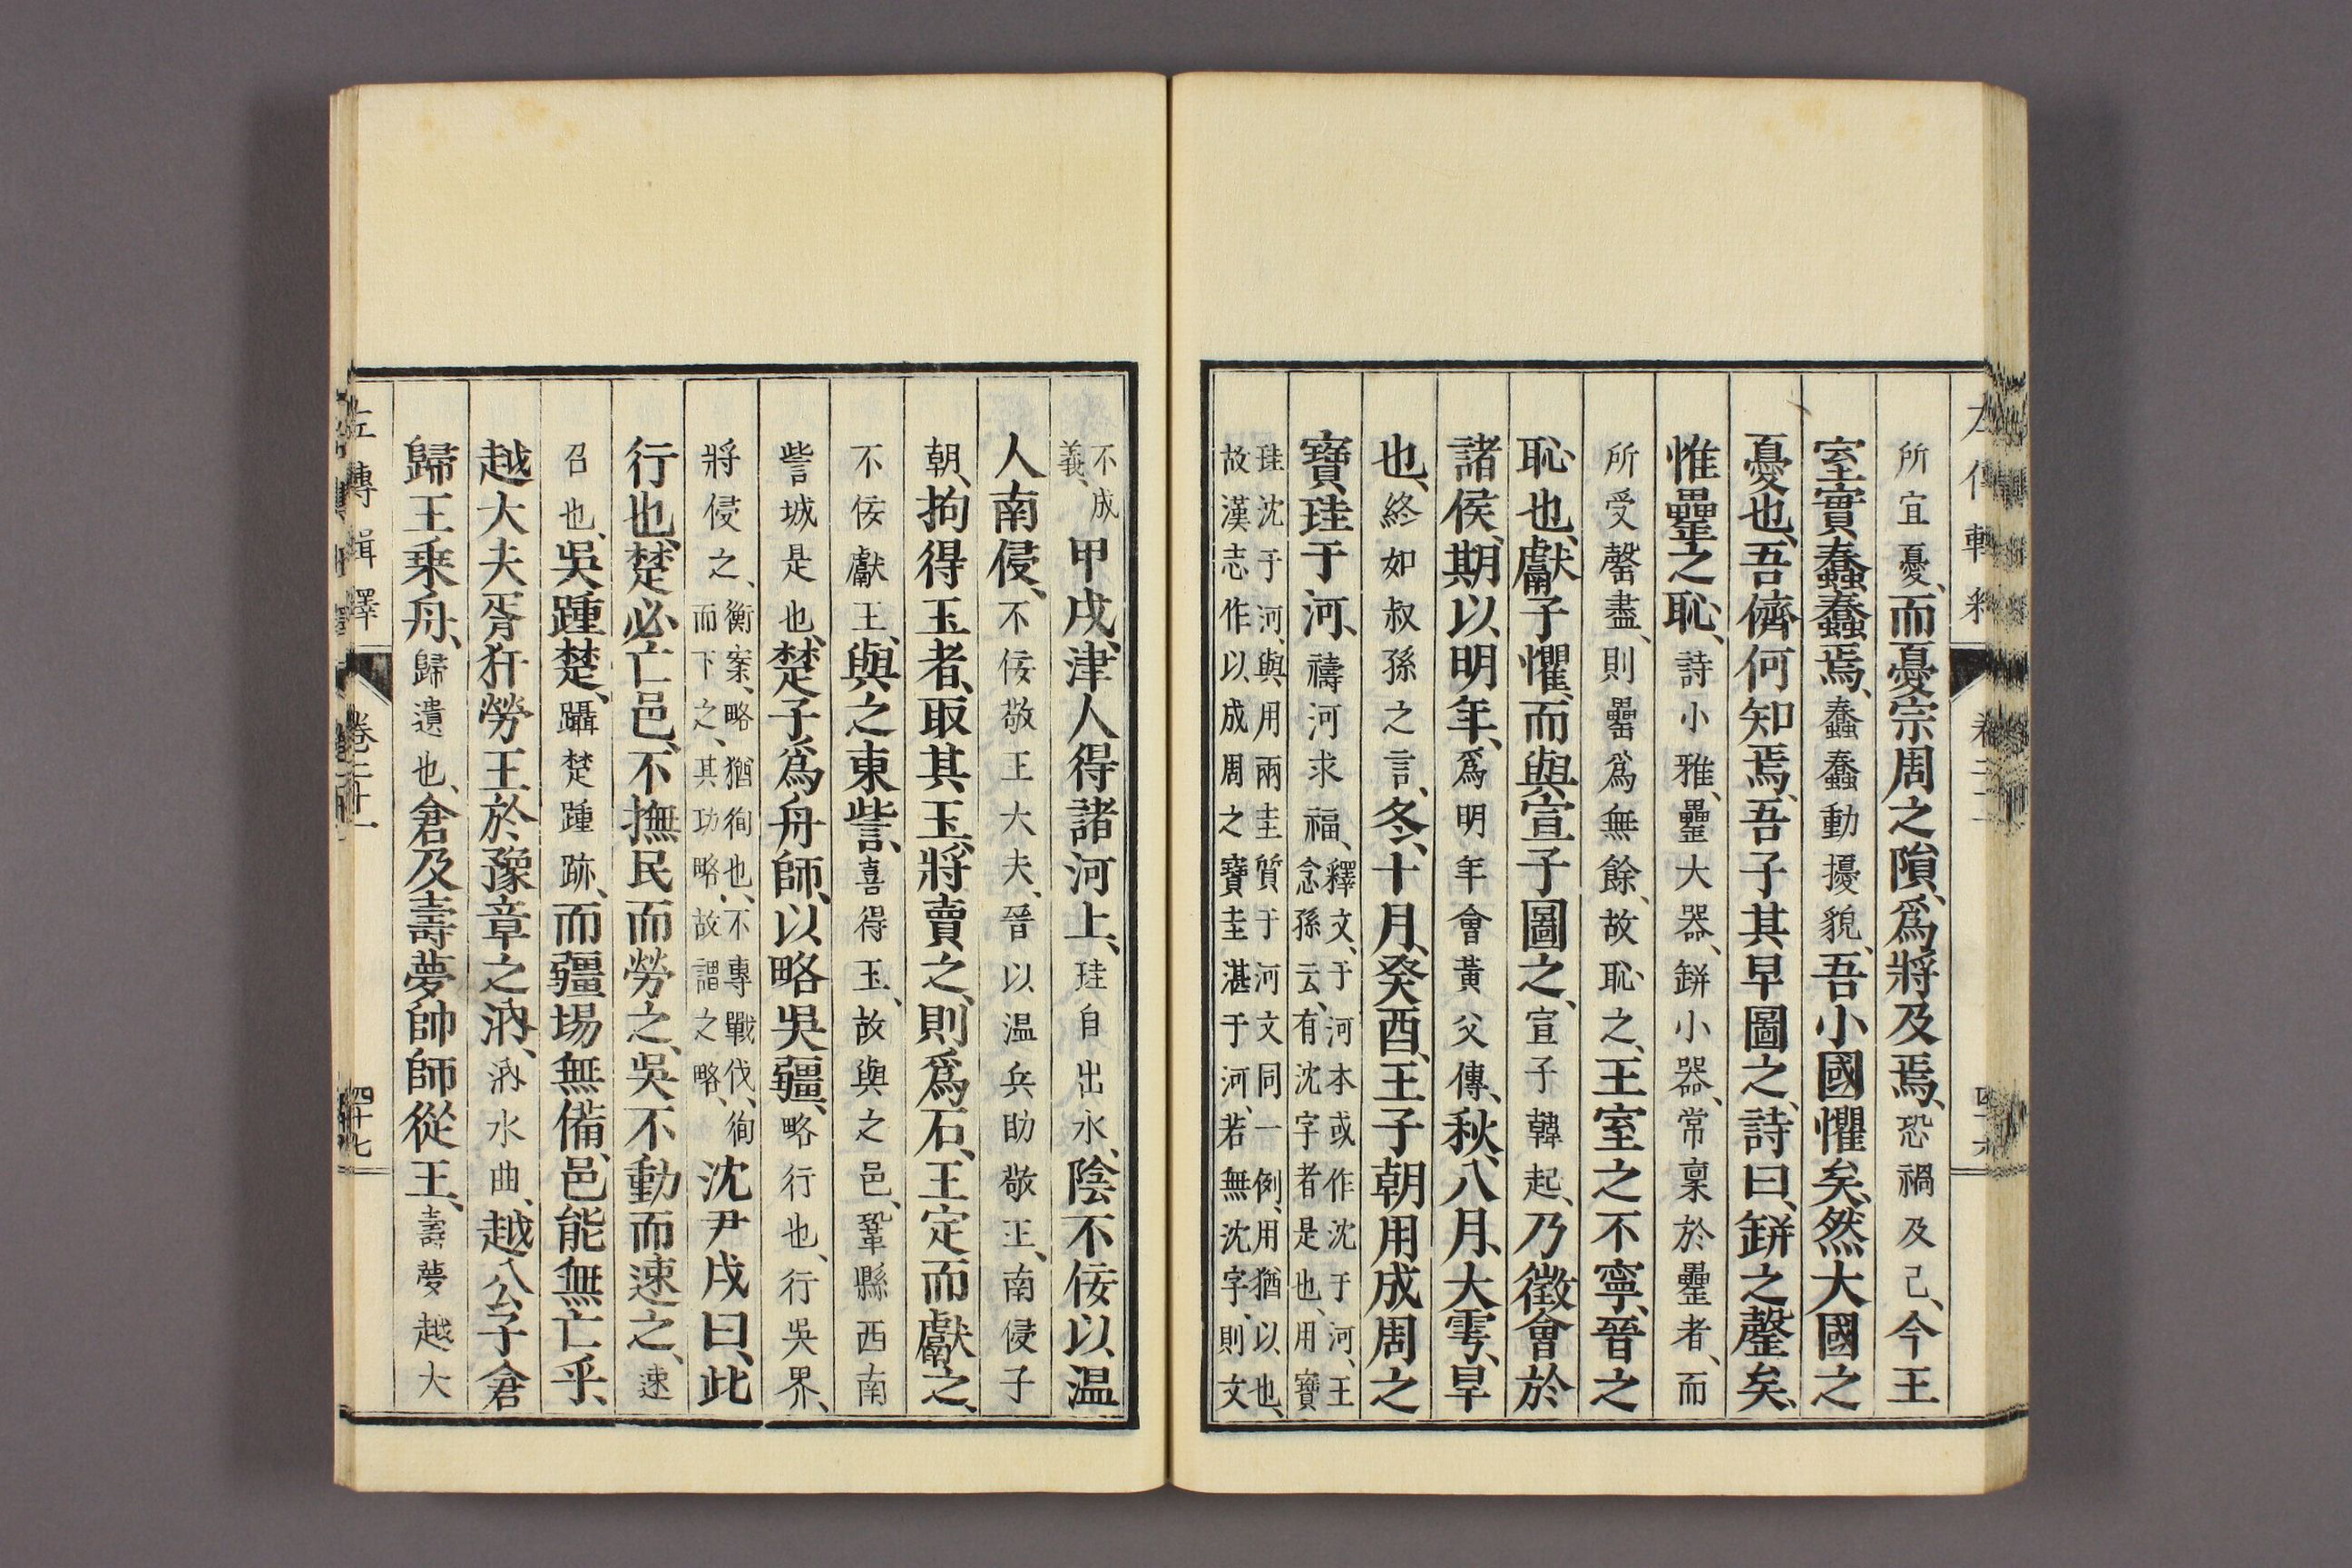 所宜憂、而憂宗周之隕、爲將及焉、恐禍及己、今王
室實蠢蠢焉、蠢蠢動擾貌、吾小國懼矣、然大國之
憂也、吾儕何知焉、吾子其早圖之、詩曰、缾之罄矣、
惟罍之恥、詩小雅、罍大器、缾小器、常稟於罍者、而
所受罄盡、則罍爲無餘、故恥之、王室之不寧、晉之
恥也、獻子懼、而與宣子圖之、宣子韓起、乃徵會於
諸侯、期以明年、爲明年會黃父傳、秋、八月、大雩、旱
也、終如叔孫之言、冬、十月、癸酉、王子朝用成周之
寶珪于河、禱河求福、釋文、于河本或作沈于河、王
念孫云、有沈字者是也、用寶
珪沈于河、與用兩圭質于河文同一例、用猶以也、
故漢志作以成周之寶圭湛于河、若無沈字、則文
不成
義、甲戌、津人得諸河上、珪自出水、陰不佞以温
人南侵、不佞敬王大夫、晉以温兵助敬王、南侵子
朝、拘得玉者、取其玉、將賣之、則爲石、王定而獻之、
不佞獻王、與之東訾、喜得玉、故與之邑、鞏縣西南
訾城是也、楚子爲舟師、以略吳疆、略行也、行吳界、
將侵之、衡案、略猶徇也、不專戰伐、徇
而下之、其功略、故謂之略、沈尹戌曰、此
行也、楚必亡邑、不撫民而勞之、吳不動而速之、速
召也、吳踵楚、躡楚踵跡、而疆埸無備、邑能無亡乎、
越大夫胥犴勞王、於豫章之汭、汭水曲、越公子倉
歸王乘舟、歸遺也、倉及壽夢帥師從王、壽夢越大
左傳輯釋 卷二十一 四十七